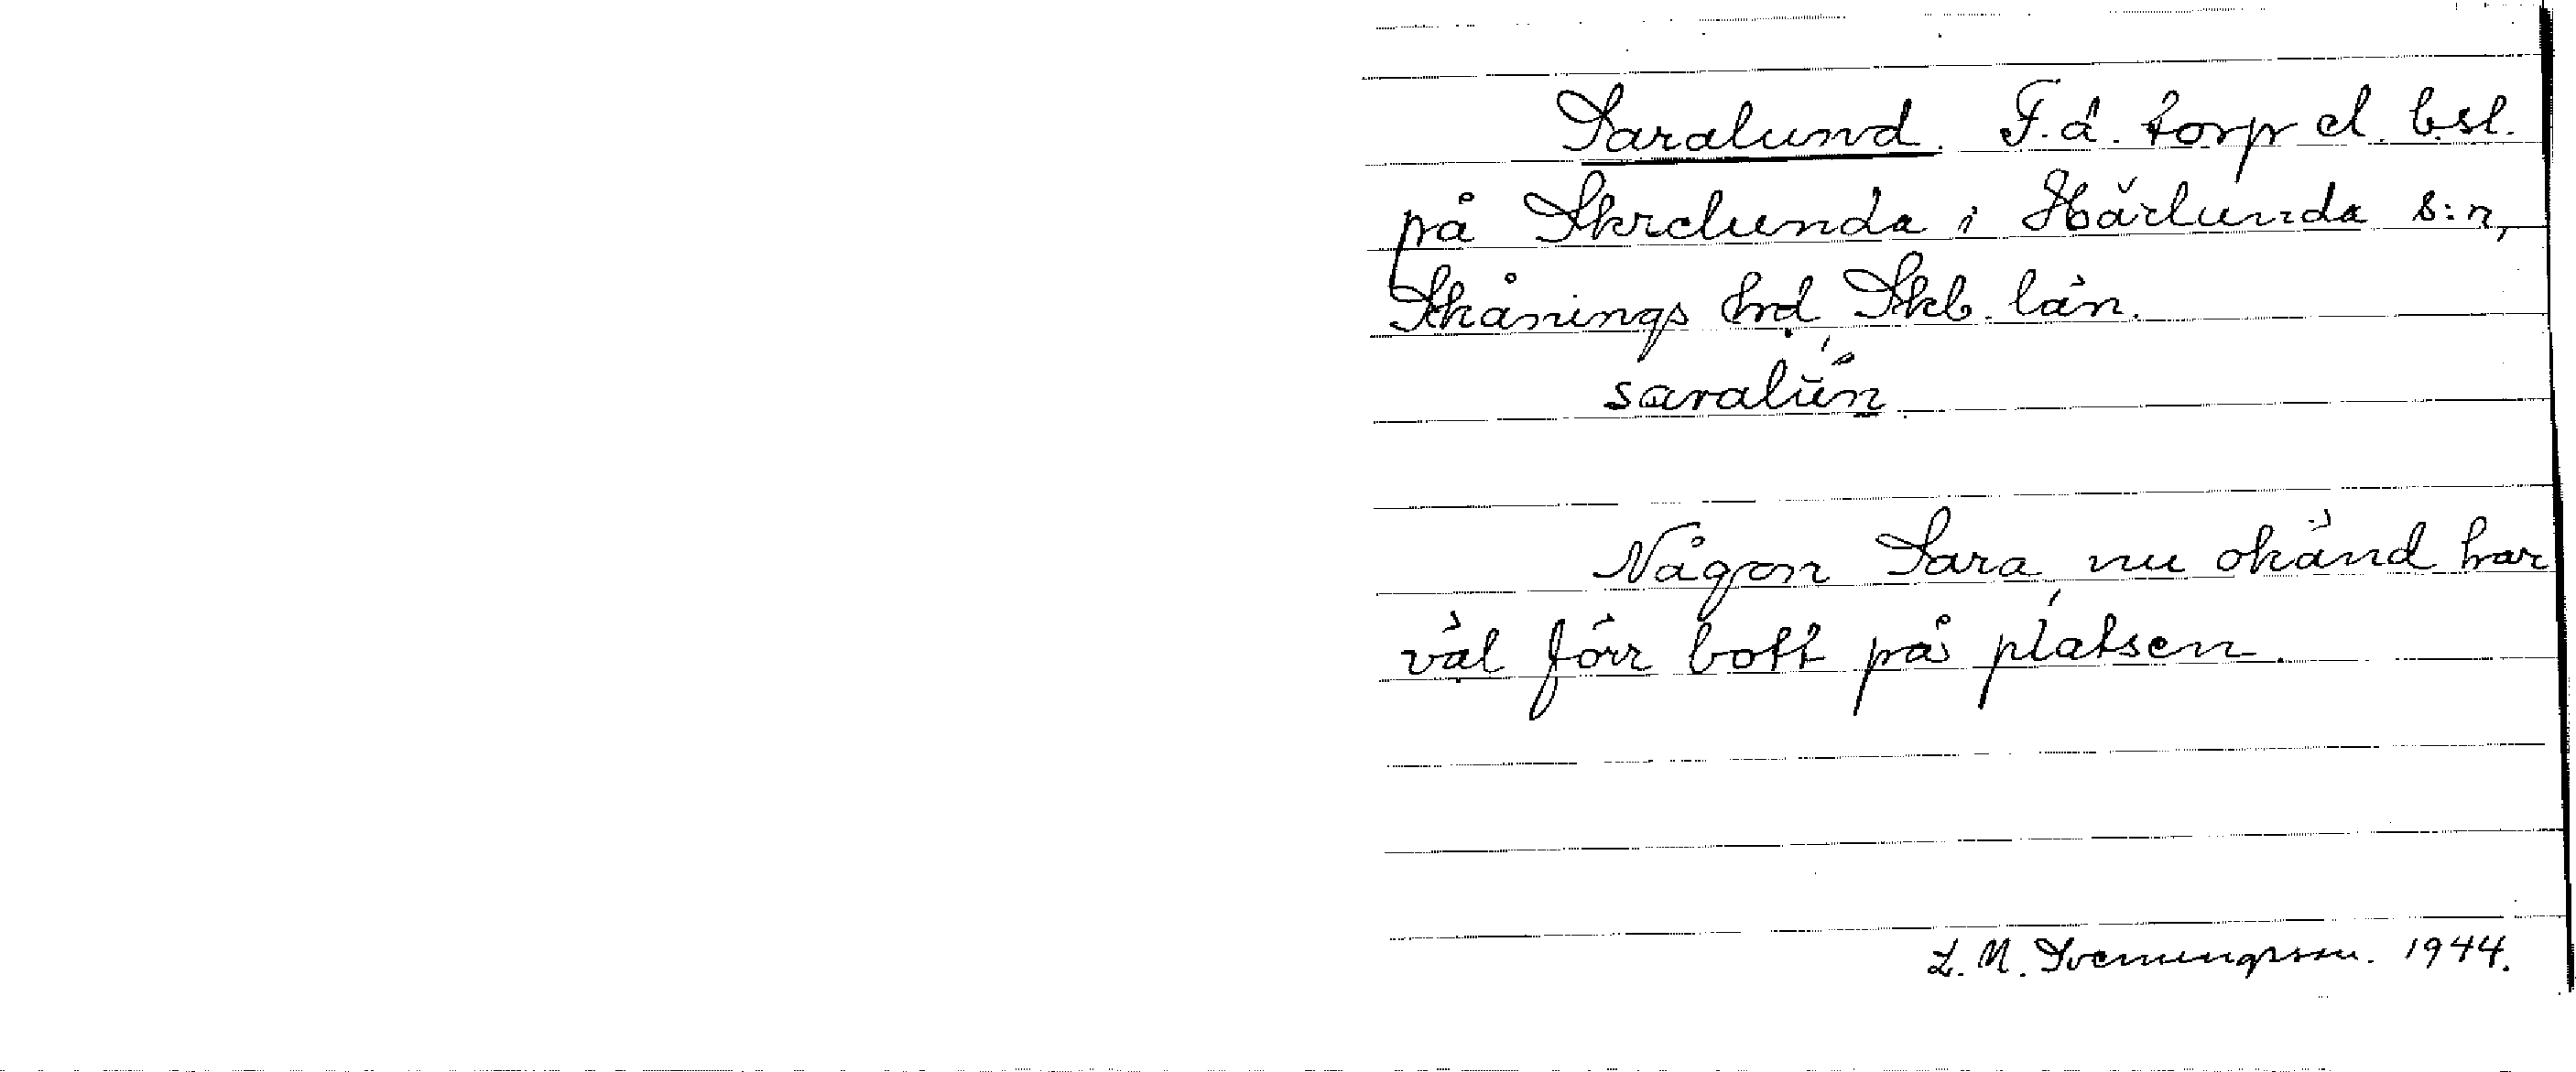 Saralund. F.d. torp el. bsl.
på Skrelunda i Härlunda s:n,
Skånings hrd, Skb. län.
saralún
Någon Sara, nu okänd har
väl förr bott på platsen.
L. N. Svenungsson. 1944.